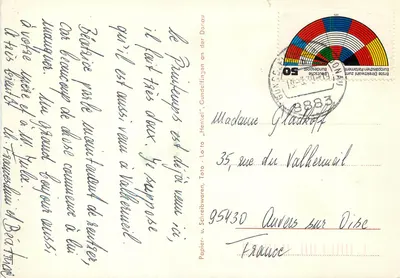 Le Printemps est déjà venu ici,
il fait très doux. Je suppose
qu'il est aussi venu à Valhermeil.
Béatrice parle maintenant de rentrer,
car beaucoup de choses commence à lui
manquer. Un grand bonjour aussi
à votre mère et à M. Julien.
A très bientôt
et Béatrice
Papier- u. Schreibwaren, Toto - Lotto „Hensel", Gundelfingen an der Donau
Madame Gladkoff
35, rue du Valhermeil
95430 Auvers sur Oise
France
Deutsche
Bundespost
50
8883